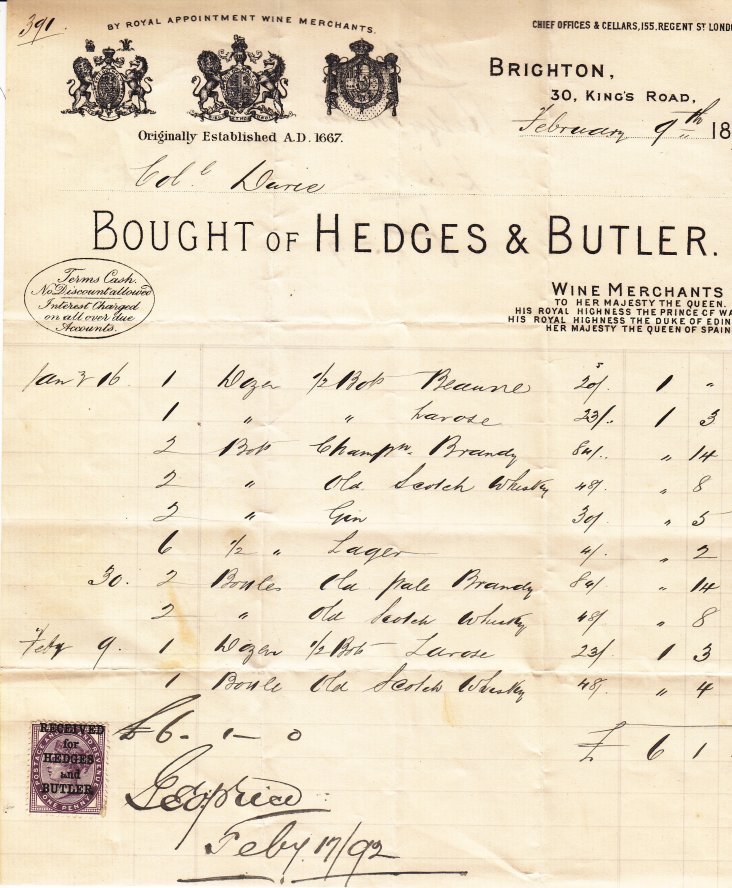 391.
BY ROYAL APPOINTMENT WINE MERCHANTS.
CHIEF OFFICES & CELLARS, 155, REGENT ST LOND
BRIGHTON,
30, KING'S ROAD,
Originally Established A.D. 1667.
February 9th 18
Col. Durie
BOUGHT OF HEDGES & BUTLER.
Terms Cash.
No Discount allowed
Interest Charged
on all over due
Accounts.
WINE MERCHANTS
TO HER MAJESTY THE QUEEN.
HIS ROYAL HIGHNESS THE PRINCE OF WA
HIS ROYAL HIGHNESS THE DUKE OF EDIN
HER MAJESTY THE QUEEN OF SPAIN
16 1 Dozen 1/2 Bots Beaune 20/ 1 "
1 " " Larose 23/. 1 3
2 Bots Champn. Brandy 84/. " 14
2 " Old Scotch Whisky 48/. " 8
2 " Gin 30/ " 5
6 1/2 " Lager 4/. " 2
30. 2 Bottles Old pale Brandy 84/ " 14
2 " Old Scotch Whisky 48/. " 8
Feby 9. 1 Dozen 1/2 Bots Larose 23/. 1 3
1 Bottle Old Scotch Whisky 48/. " 4
£6-1-0
£ 6 1
POSTAGE AND INLAND REVENUE
RECEIVED
for
HEDGES
and
BUTLER
ONE PENNY
Geo Price
Feby. 17/92